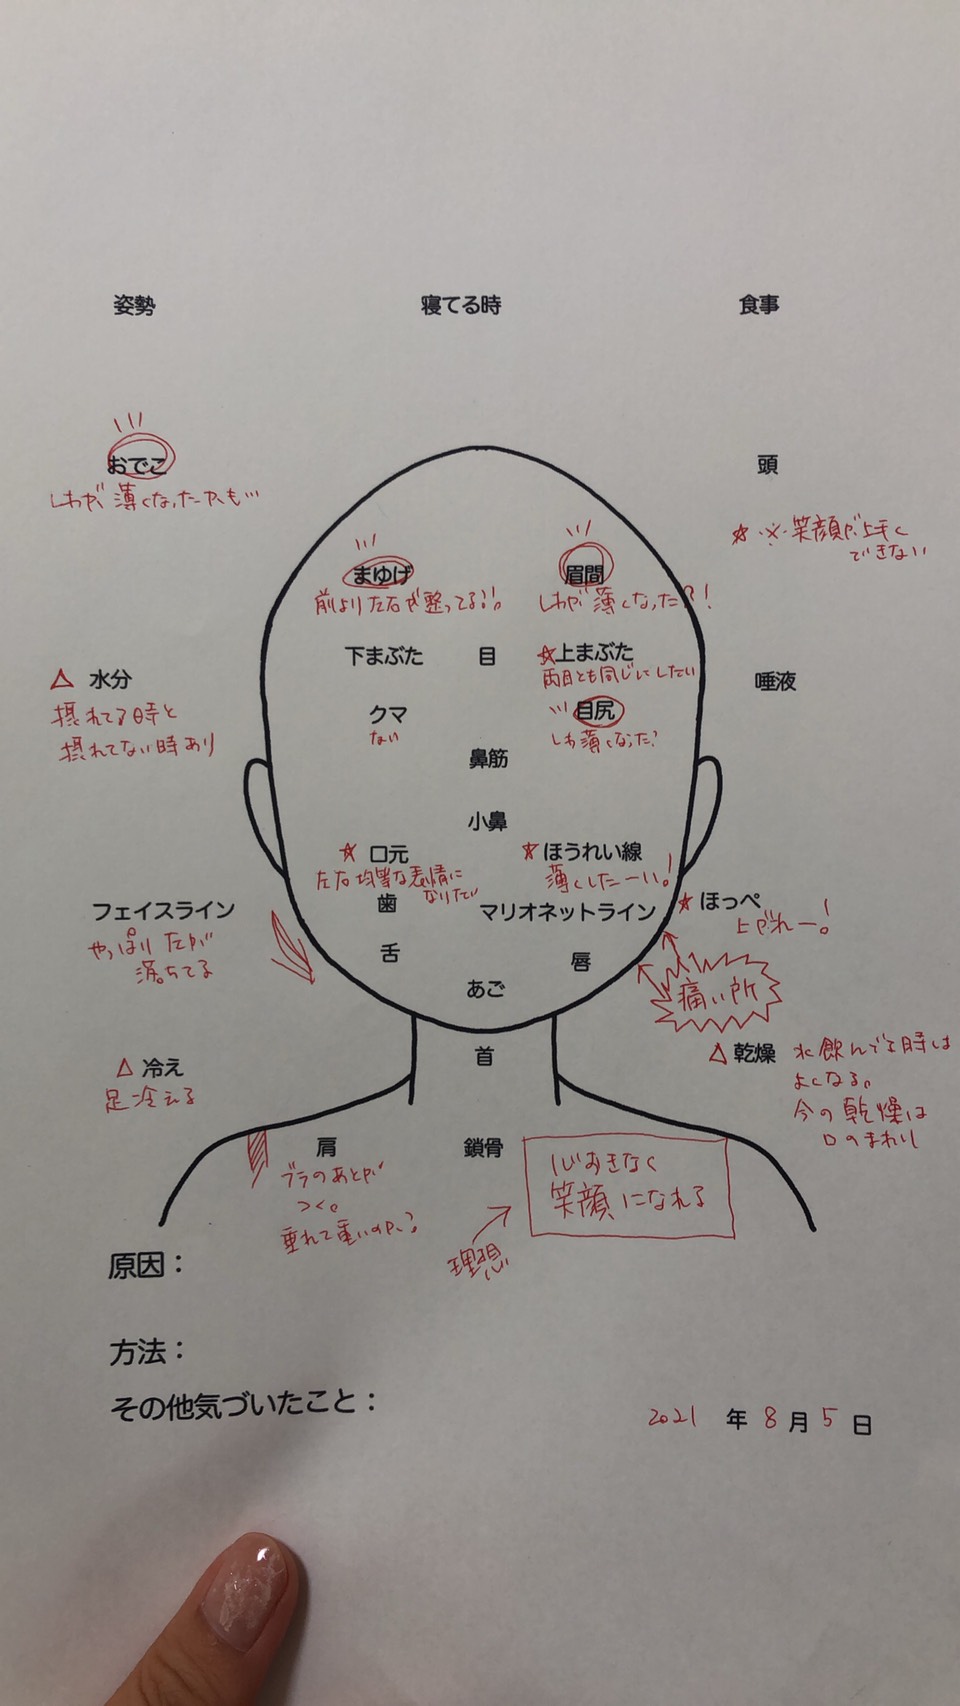 姿勢
寝てる時
食事
おでこ
しわが薄くなったかも…
頭
☆※笑顔が上手く
できない
まゆげ
前より左右が整ってる!!。
眉間
しわが薄くなった?!
下まぶた
目
☆上まぶた
両目とも同じにしたい
△ 水分
摂れてる時と
摂れてない時あり
唾液
クマ
ない
目尻
しわ薄くなった?
鼻筋
小鼻
☆ 口元
左右均等な表情に
なりたい
☆ ほうれい線
薄くしたーい!
フェイスライン
やっぱり左が
落ちてる
歯
マリオネットライン
☆ ほっぺ
上がれー!
舌
唇
あご
痛い所
首
△ 冷え
足冷える
△ 乾燥
水飲んでる時は
よくなる。
今の乾燥は
口のまわり
肩
ブラのあとが
つく。
垂れて重いのか?
鎖骨
心おきなく
笑顔になれる
理想
原因：
方法：
その他気づいたこと：
2021 年 8 月 5 日